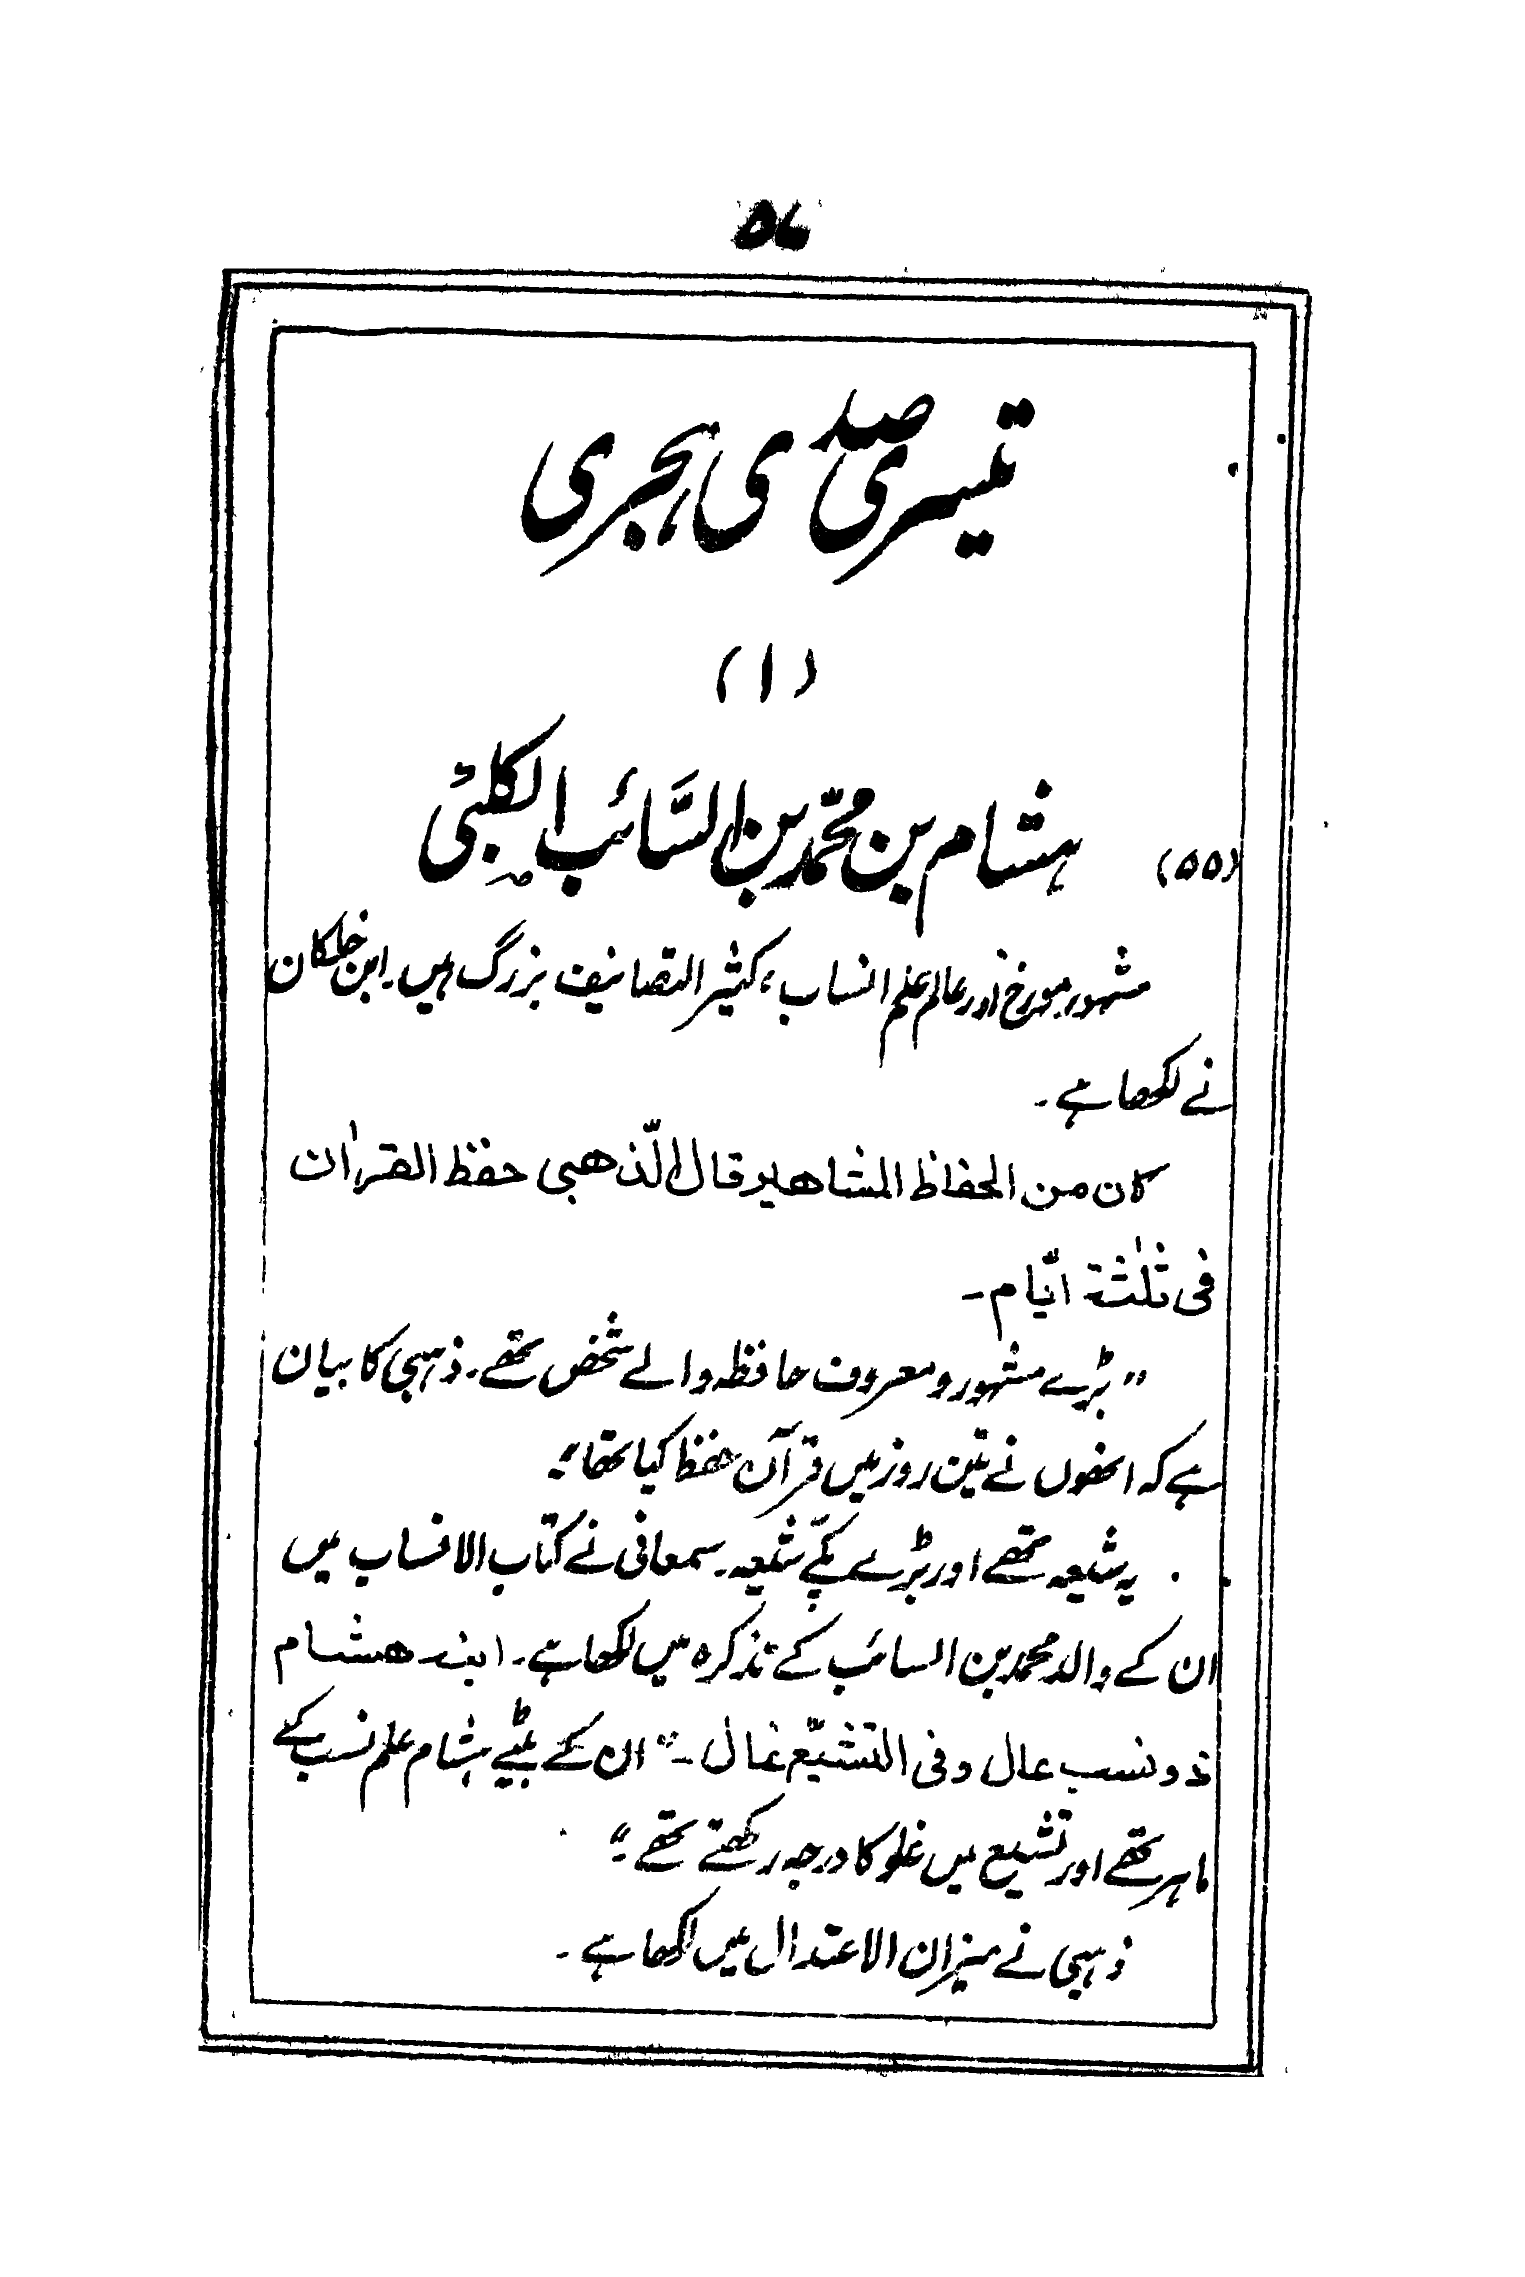 ۵۶
تیسری صدی ہجری
(۱)
(۵۵) ہشام بن محمّد بن السَّائب الکلبیؒ
مشہور مورخ اور عالم علم انساب، کثیر التصانیف بزرگ ہیں۔ ابن خلکان
نے لکھا ہے۔
کان من الحفاظ المشاھیر قال الذّھبی حفظ القراٰن
فی ثلٰثۃ ایّام۔
”بڑے مشہور و معروف حافظہ والے شخص تھے۔ ذہبی کا بیان
ہے کہ انھوں نے تین روز میں قرآن حفظ کیا تھا۔“
یہ شیعہ تھے اور بڑے پکّے شیعہ۔ سمعانی نے کتاب الانساب میں
ان کے والد محمد بن السائب کے تذکرہ میں لکھا ہے۔ ابنہ ھشام
ذو نسب عال و فی التشیّع غال۔“ ان کے بیٹے ہشام علم نسب کے
ماہر تھے اور تشیع میں غلو کا درجہ رکھتے تھے۔“
ذہبی نے میزان الاعتدال میں لکھا ہے۔